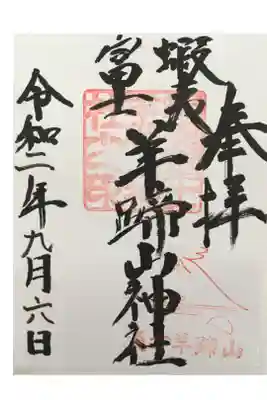 奉拝
蝦夷
富士
羊蹄山神社
令和二年九月六日
羊蹄山